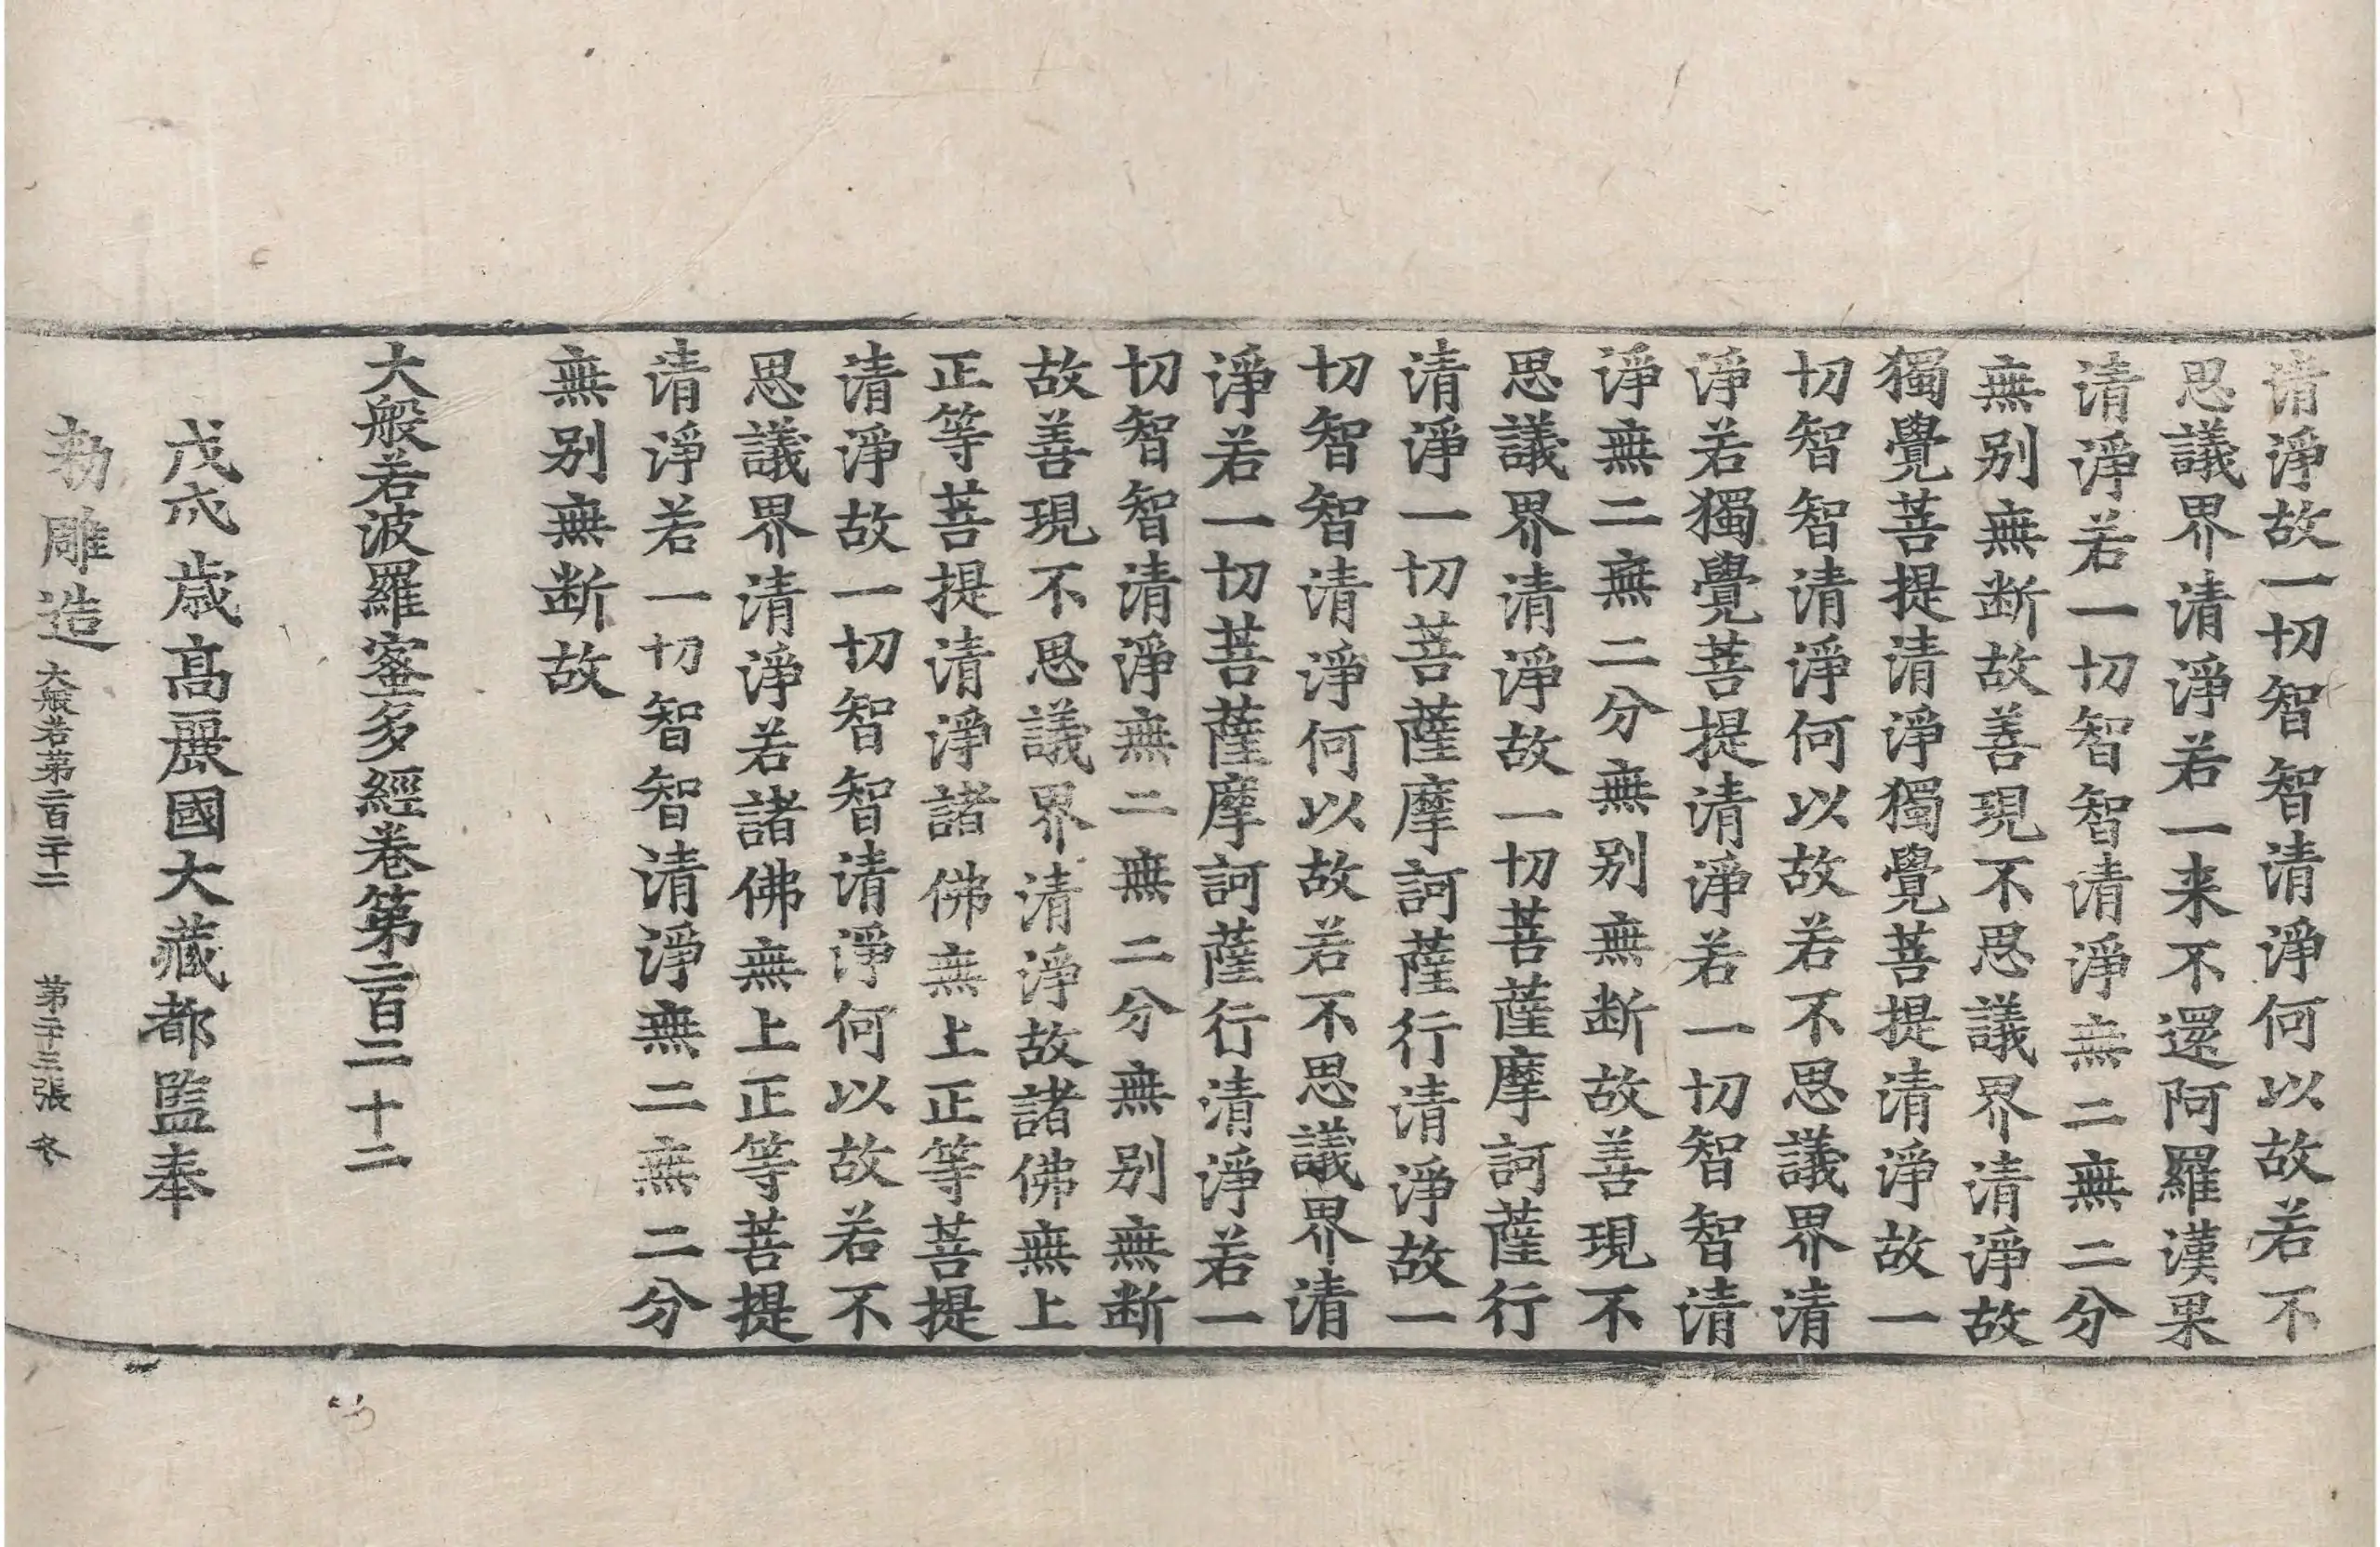 清淨故一切智智清淨何以故若不
思議界清淨若一来不還阿羅漢果
清淨若一切智智清淨無二無二分
無别無断故善現不思議界清淨故
獨覺菩提清淨獨覺菩提清淨故一
切智智清淨何以故若不思議界清
淨若獨覺菩提清淨若一切智智清
淨無二無二分無别無断故善現不
思議界清淨故一切菩薩摩訶薩行
清淨一切菩薩摩訶薩行清淨故一
切智智清淨何以故若不思議界清
淨若一切菩薩摩訶薩行清淨若一
切智智清淨無二無二分無别無断
故善現不思議界清淨故諸佛無上
正等菩提清淨諸佛無上正等菩提
清淨故一切智智清淨何以故若不
思議界清淨若諸佛無上正等菩提
清淨若一切智智清淨無二無二分
無别無断故
大般若波羅蜜多經卷第二百二十二
戊戌歳高麗國大藏都監奉
勑雕造
大般若第二百二十二 第二十三張 冬